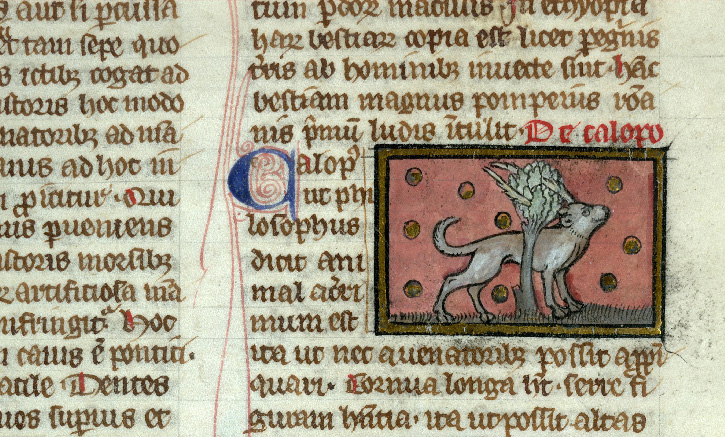 aut si pculsa
tam sepe quo
s ictibz cogat ad
storis hoc modo
natoribz ad usa
anus ad hoc in
picitur. Qui
us pueniens
storis morsibz
artificiosa
nfringit. Hoc
caius e pontici.
Dentes
superius et
tium pdor maculis. In ethyopia
harz bestiarz copia est licet pegnis
tris ab hominibz inuecte sint. hac
bestiam magnus pompeius roa
nis pmu ludis itulit. De calopo
Calop
ut phi
losophus
dicit ani
mal acri
mum est
ita ut nec auenatoribz possit appi
quari. Cornua longa ht. serre fi
guram hntia. ita ut possit altas